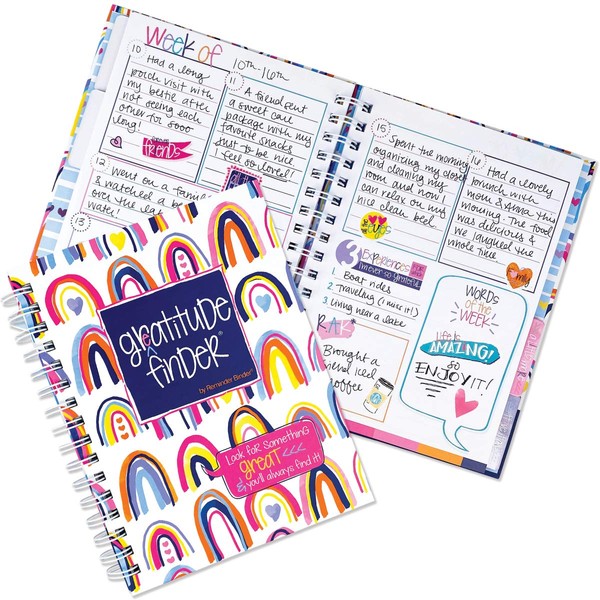 Week of
10th-16th
10
Had a long
porch visit with
my bestie after
not seeing each
other for sooo
long!
friends
11
A friend sent
a sweet care
package with my
favorite snacks
just to be nice
I feel so loved!
12
Went on a
& watched a
over the
water!
13
15
Spent the morning
organizing my closet
and cleaning my
room and now I
can relax on my
nice clean bed
16
Had a lovely
brunch with
mom & Anna this
morning. The food
was delicious &
we laughed the
whole time
family
3 Experiences
I'm ever so grateful
1. Boat rides
2. Traveling (I miss it!)
3. Living near a lake
RAK
Bought a
friend iced
coffee
WORDS
of the
WEEK
Life is
AMAZING!
so
ENJOY IT!
greatitude
finder®
by Reminder Binder®
Look for something
great <<<
& you'll always find it!